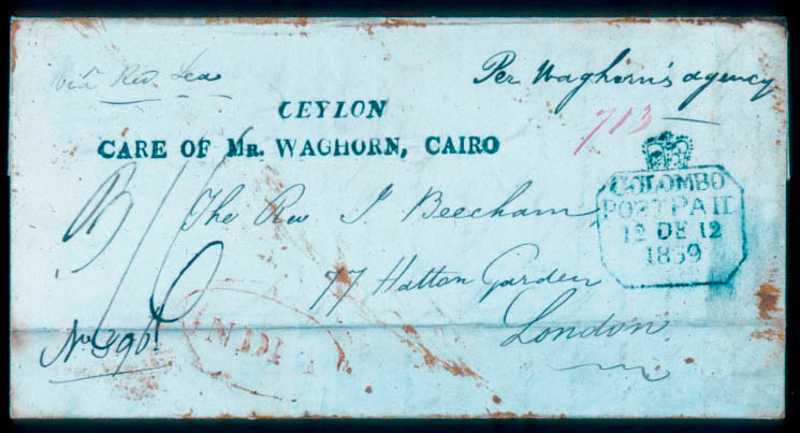 via Red Sea
Per Waghorn's agency
CEYLON
CARE OF MR. WAGHORN, CAIRO
713
COLOMBO
POST PAID
12 DE 12
1839
The Rev J. Beecham
77 Hatton Garden
London